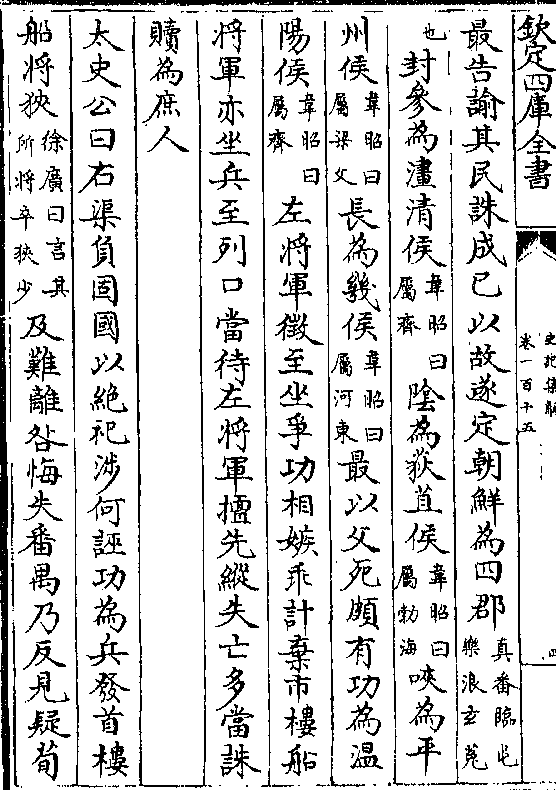 欽定四庫全書
史記集解
卷一百十五
四
最告諭其民誅成已以故遂定朝鮮為四郡真番臨屯樂浪玄莵
也封參為澅清侯韋昭曰屬齊陰為荻苴侯韋昭曰屬勃海唊為平
州侯韋昭曰屬梁父長為幾侯韋昭曰屬河東最以父死頗有功為温
陽侯韋昭曰屬齊左將軍徵至坐爭功相嫉乖計棄市樓船
將軍亦坐兵至列口當待左將軍擅先縱失亡多當誅
贖為庶人
太史公曰右渠負固國以絶祀涉何誣功為兵發首樓
船將狹徐廣曰言其所將卒狹少及難離咎悔失番禺乃反見疑荀